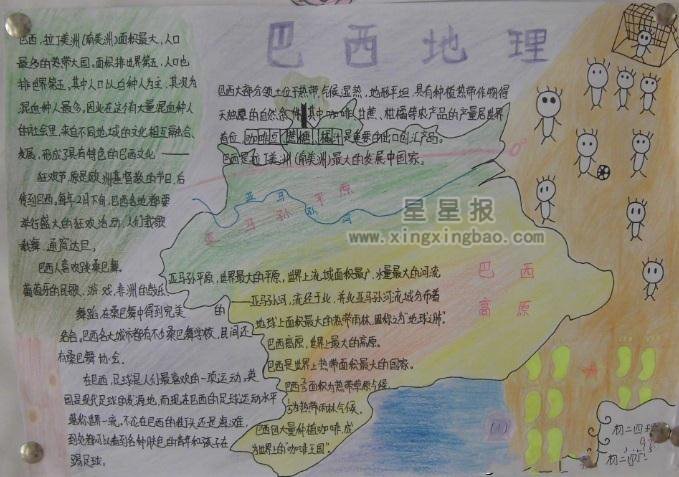 巴西地理
巴西,拉丁美洲(南美洲)面积最大,人口
最多的热带大国。面积排世界第五,人口也
排世界第五,其中人口以白种人为主,其次为
混血种人最多,因此在这个有大量混血种人
的社会里,来自不同地域的文化相互融合、
发展,形成了具有特色的巴西文化——
狂欢节,原是欧洲基督教的节日,后
传到巴西,每年2月下旬,巴西各地都要
举行盛大的狂欢活动,人们载歌
载舞,通宵达旦。
巴西人喜欢跳桑巴舞。
葡萄牙的民歌、游戏,非洲的鼓乐、
舞蹈,在桑巴舞中得到完美的
结合。巴西各大城市都有不少桑巴舞学校,民间还
有桑巴舞协会。
在巴西,足球是人们最喜欢的一项运动,英
国是现代足球的发源地,而现在巴西的足球运动水平
是
世界一流,不论在巴西的街头还是
到处都可以看到各种肤色的青年和孩子在
踢足球。
巴西大部分领土位于热带,气候湿热,地形平坦,具有种植热带作物得
天独厚的自然条件,其中咖啡、甘蔗、柑橘等农产品的产量居世界
首位,咖啡豆、蔗糖、橘汁是重要的出口创汇产品。
巴西是拉丁美洲(南美洲)最大的发展中国家。
0°
亚马孙河
亚马孙平原
星星报
www.xingxingbao.com
亚马孙平原,世界最大的平原,世界上流域面积最广、水量最大的河流
——亚马孙河,流经于此,并在亚马孙河流域分布着
地球上面积最大的热带雨林,因称之为"地球之肺"。
巴西高原,世界上最大的高原。
巴西是世界上热带面积最大的国家。
巴西
高原
面积为热带草原气候
为热带雨林气候。
巴西因大量种植咖啡成
为世界上的"咖啡王国"。
初二四班